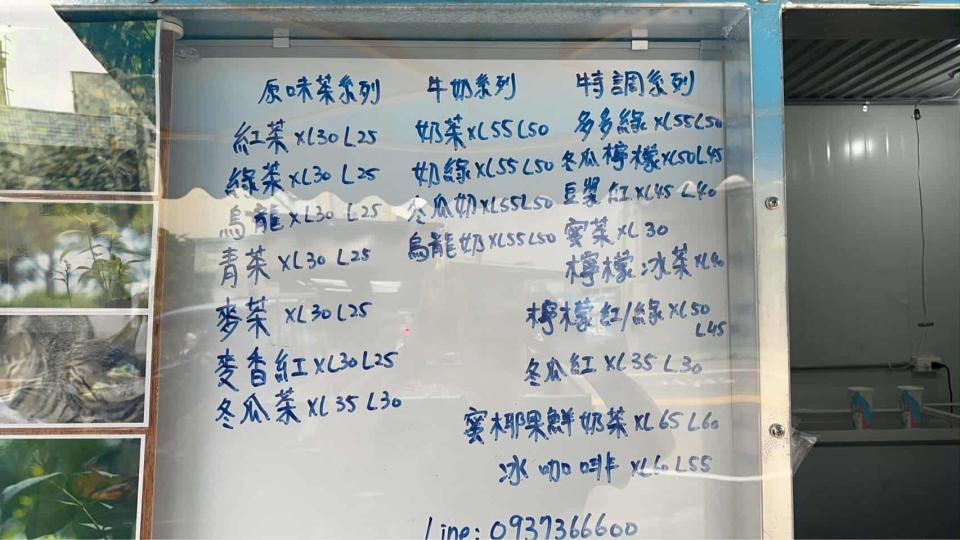 原味茶系列
紅茶 XL30 L25
綠茶 XL30 L25
烏龍 XL30 L25
青茶 XL30 L25
麥茶 XL30 L25
麥香紅 XL30 L25
冬瓜茶 XL35 L30
牛奶系列
奶茶 XL55 L50
奶綠 XL55 L50
冬瓜奶 XL55 L50
烏龍奶 XL55 L50
特調系列
多多綠 XL55 L50
冬瓜檸檬 XL50 L45
豆漿紅 XL45 L40
蜜茶 XL30
檸檬冰茶 XL40
檸檬紅/綠 XL50
L45
冬瓜紅 XL35 L30
蜜椰果鮮奶茶 XL65 L60
冰咖啡 XL60 L55
Line: 0937366600